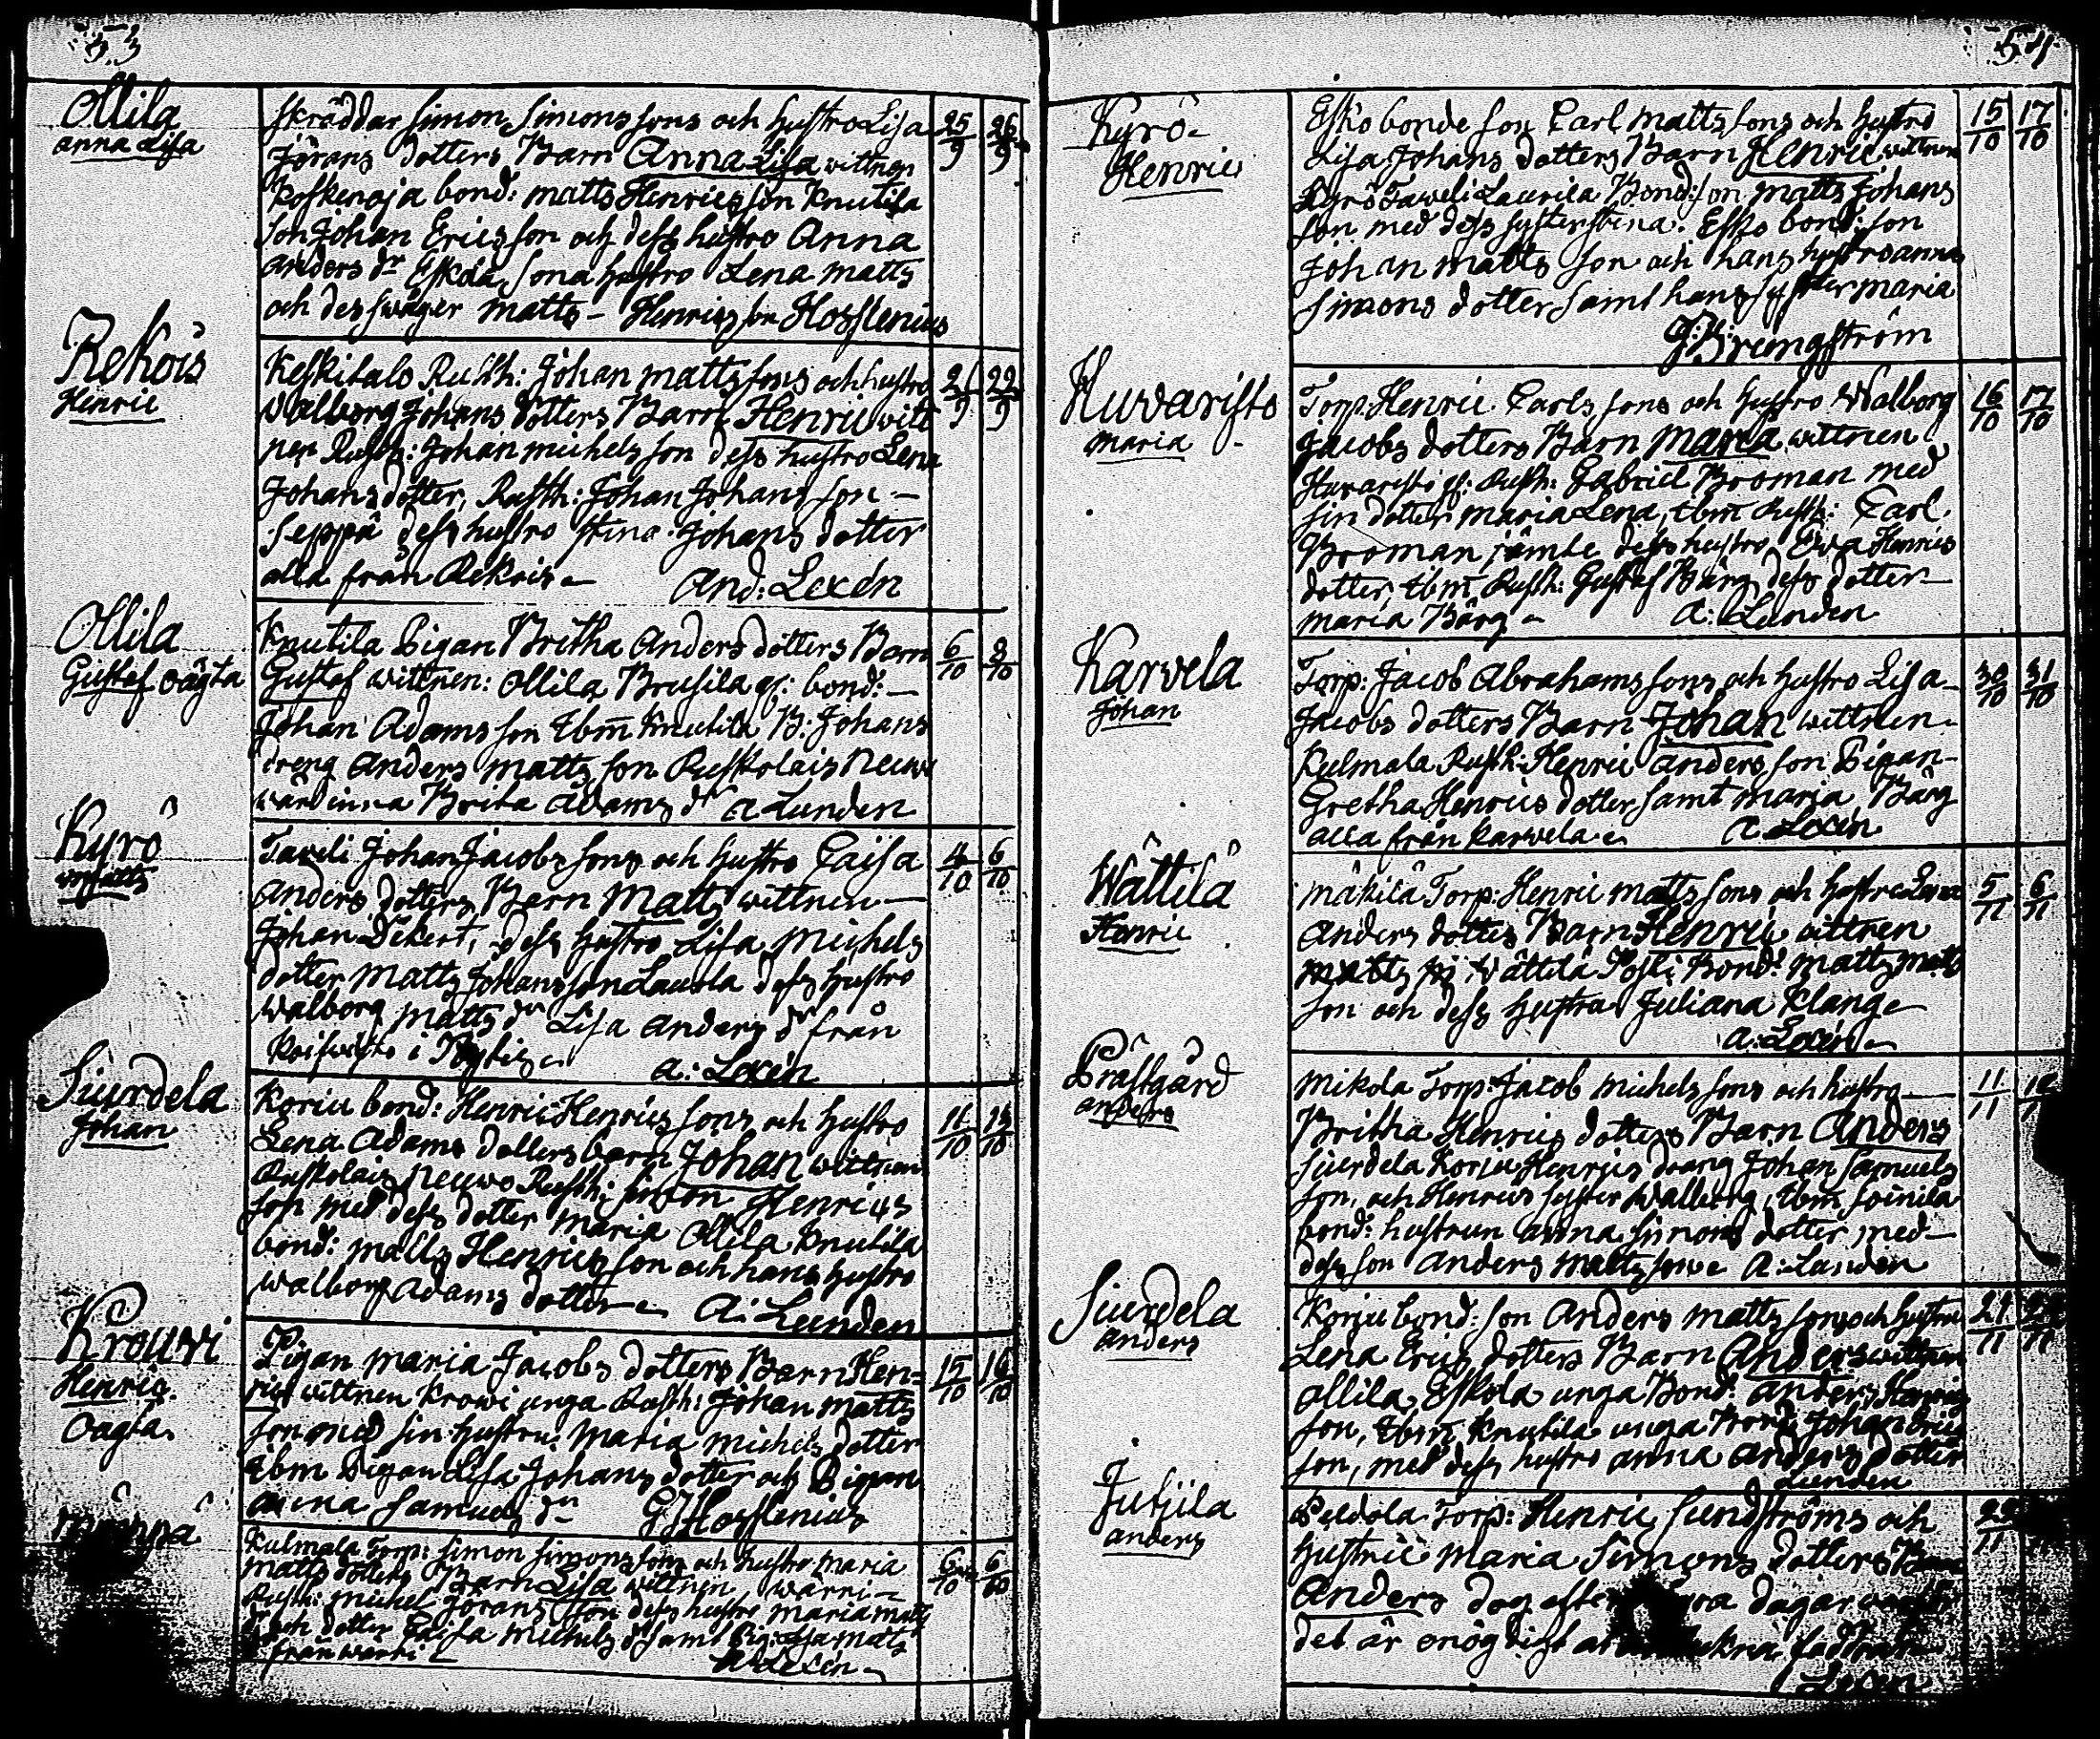 53
Ollila
Anna Lisa
Skräddar Simon Simons sons och hustro Lisa 25/9 26/9
Jörans dotters Barn Anna Lisa wittnen
Koskenoja bond: Matts Henrics son Knutila
son Johan Erics son och dess hustro Anna
Anders dr Eskola sona hustro Lena Matts
och des swåger Matts - Henrics son Hosslenius
Rekois
Henric
Keskitalo Rusth: Johan Matts sons och hustro 21/9 22/9
Walborg Johans dotters Barn Henric witt
nen Rusth: Johan Michels son dess hustro Lena
Johans dotter, Rusth: Johan Johans son -
Seppä dess hustro Stina Johans dotter
alla från Rekois - And: Lexén
Ollila
Gustaf oägta
Knutila Pigan Britha Anders dotters Barn 6/10 8/10
Gustaf wittnen: Ollila Brusila gl: bond: -
Johan Adams son Ibm Knutila B: Johans
dreng Anders Matts son Ruskolais Neuwo
wärdinna Brita Adams dr A Lunden
Kyrö
Matts
Taveli Johan Jacobs sons och hustro Caisa 4/10 6/10
Anders dotters Barn Matts wittnen -
Johan Dekert, dess hustro Lisa Michels
dotter Matts Johans son Laurola dess hustro
Walborg Matts dr Lisa Anders dr från
Koiwisto i Pöytis A: Lexén
Siurdela
Johan
Korju bond: Henric Henrics sons och hustro 11/10 13/10
Lena Adams dotters barn Johan wittnen
Ruskolais Neuwo Rusth: Simon Henrics
son med dess dotter Maria Ollila Knutila
bond: Matts Henrics son och hans hustro
Walborg Adams dotter A: Lunden
Krouwi
Henric
Oägta
Pigan Maria Jacobs dotters Barn Hen= 15/10 16/10
ric wittnen Krowi unga Rusth: Johan Matts
son med sin hustru Maria Michels dotter
Ibm Pigan Lisa Johans dotter och Pigan
Anna Samuels dr G Hosslenius
Kulmala Torp: Simon Simons sons och hustro Maria 6/10 6/10
Matts dotters Barn Lisa wittnen, Warri-
Rusth: Michel Jörans son dess hustro Maria Matts
dr och dotter Caisa Michels dr samt Pig: Lisa Matts
från Warri A Lexén
54
Kyrö
Henric
Esko bonde son Carl Matts sons och hustro 15/10 17/10
Lisa Johans dotters Barn Henric wittnen
Kyrö Taweli Laurila Bond: son Matts Johans
son med dess syster Stina. Esko bond: son
Johan Matts son och hans hustro Anna
Simons dotter samt hans syster Maria
Bremgström
Huwaristo
Maria
Torp: Henric Carls sons och hustro Walborg 16/10 17/10
Jacobs dotters Barn Maria wittnen
Huvaristo gl: Rusth: Gabriel Broman med
sin dotter Maria Lena, Ibm Rusth: Carl
Broman jämte dess hustro Ewa Henrics
dotter, Ibm Rusth: Gustaf Bärg dess dotter
Maria Bärg - A: Lunden
Karvela
Johan
Torp: Jacob Abrahams sons och hustro Lisa 30/10 31/10
Jacobs dotters Barn Johan wittnen
Kulmala Rusth: Henric Anders son Pigan
Gretha Henrics dotter samt Maria Bärg
alla från Karvela A: Lexén
Wättilä
Henric
Mäkilä Torp: Henric Matts sons och hustro Lena 5/11 6/11
Anders dotters Barn Henric wittnen
Wättilä Posti Bond: Matts Matts
son och dess hustru Juliana Klang
A: Lexén
Prästgård
Anders
Mikola Torp: Jacob Michels sons och hustro 11/11
Britha Henrics dotters Barn Anders
Siurdela Korju Henrics dräng Johan Samuels
son, och Henrics syster Walborg, Ibm Soinila
bond: hustrun Anna Simons dotter med
dess son Anders Matts son A: Lunden
Siurdela
Anders
Korju bond: son Anders Matts sons och hustru 21/11
Lena Erics dotters Barn Anders wittnen
Ollila Eskola unga Bond: Anders Henrics
son, Ibm Knutila unga Bond: Johan Erics
son, med dess hustro Anna Anders dotter
Lunden
Jutjila
Anders
Peldola Torp: Henric Sundströms och 22/11
hustru Maria Simons dotters Barn
Anders dog efter dagar
det är onögdigt
Lexén